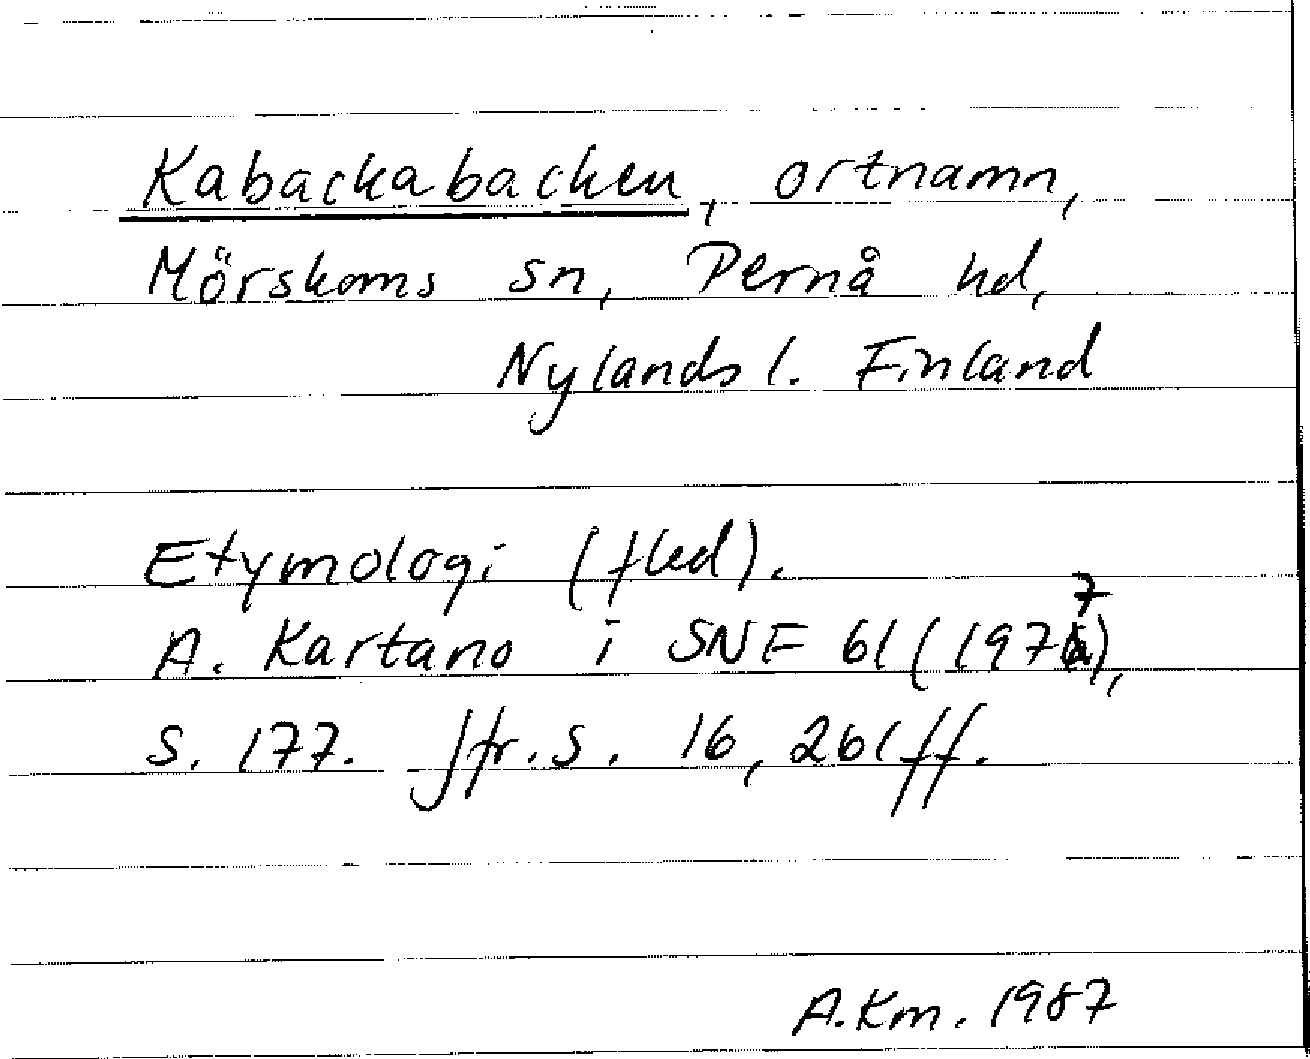 Kabackabacken, ortnamn,
Mörskoms sn, Pernå hd,
Nylands l. Finland
Etymologi (fled).
A. Kartano i SNF 61 (1977),
s. 177. Jfr. s. 16, 261 ff.
A.Km. 1987